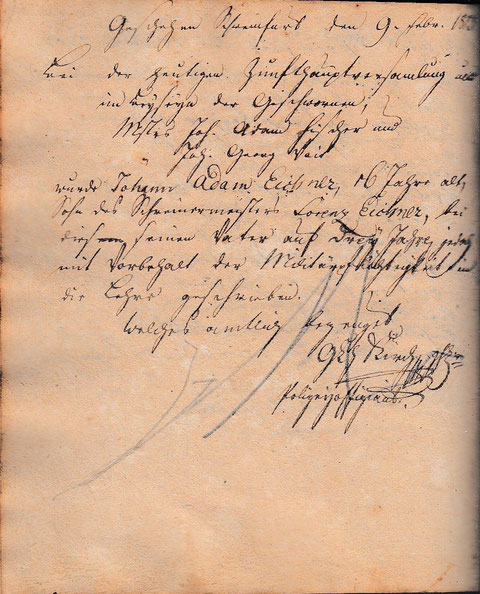 Geschehen Schweinfurt den 9. Febr. 183
Bei der heutigen Zunfthauptversamlung und
im Beyseyn der Geschwornen,
Mstrs Joh. Adam Fischer und
Joh. Georg Veit
wurde Johann Adam Eichner, 16 Jahre alt,
Sohn des Schreinermeisters Lorenz Eichner, bei
diesem seinen Vater auf Drey Jahre, jedoch
mit Vorbehalt der Militärpflichtigkeit in
die Lehre geschrieben.
Welches amtlich bezeugt
Polizeyoffiziant.